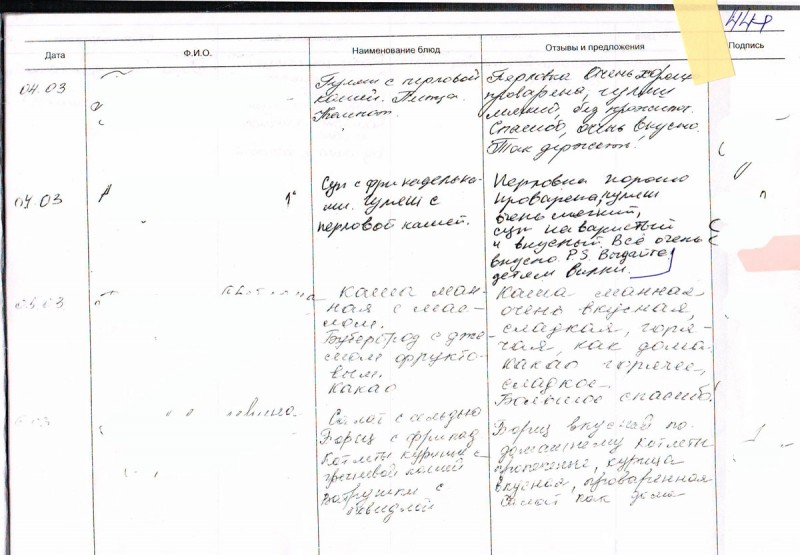 448
Дата Ф.И.О. Наименование блюд Отзывы и предложения Подпись
04.03
Гуляш с перловой
кашей. Пицца.
Компот.
Перловка очень хорошо
проварена, гуляш
мягкий, без прожилок.
Спасибо, очень вкусно.
Так держать!
04.03
Суп с фрикаделька-
ми. Гуляш с
перловой кашей.
Перловка хорошо
проварена, гуляш
очень мягкий,
суп наваристый
и вкусный. Всё очень
вкусно. P.S. Выдайте
детям вилки.
05.03
Каша ман-
ная с мас-
лом.
Бутерброд с дже-
мом фрукто-
вым.
Какао
Каша манная
очень вкусная,
сладкая, горя-
чая, как дома.
Какао горячее,
сладкое.
Большое спасибо!
Салат с сельдью
Борщ с фрикад
Котлеты курица с
гречневой кашей
Ватрушки с
повидлой
Борщ вкусный по-
домашнему котлеты
курица
вкусная, проваренная
Салат как дома